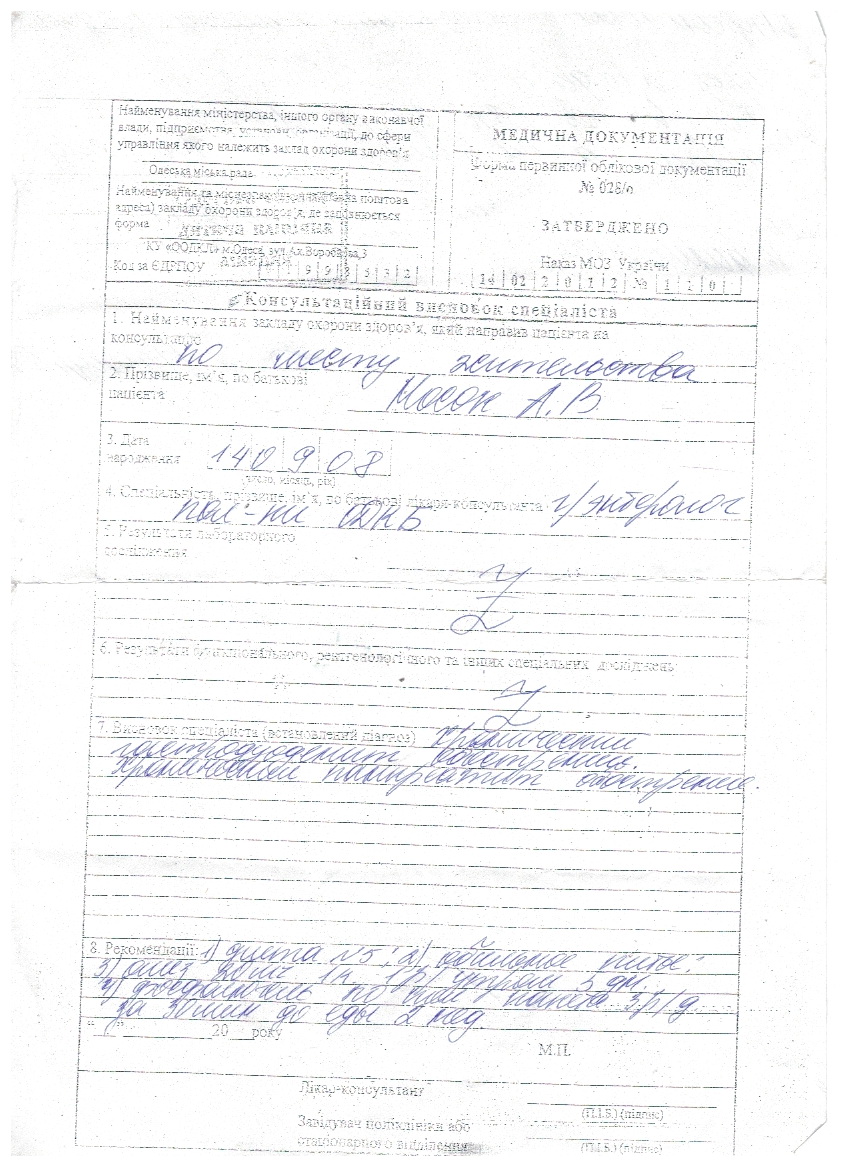 Найменування міністерства, іншого органу виконавчої
влади, підприємства, установи, організації, до сфери
управління якого належить заклад охорони здоров'я
Одеська міська рада
Найменування та місцезнаходження (повна поштова
адреса) закладу охорони здоров'я, де заповнюється
форма
м.Одеса, вул.Ак.Воробйова,3
Код за ЄДРПОУ
МЕДИЧНА ДОКУМЕНТАЦІЯ
Форма первинної облікової документації
№ 028/о
ЗАТВЕРДЖЕНО
Наказ МОЗ України
14 02 2 0 1 2 № 1 1 0
Консультаційний висновок спеціаліста
1. Найменування закладу охорони здоров'я, який направив пацієнта на
консультацію по месту жительства
2. Прізвище, ім'я, по батькові
пацієнта Носок А.В.
3. Дата
народження 14 0 9 0 8
(число, місяць, рік)
4. Спеціальність, прізвище, ім'я, по батькові лікаря-консультанта г/энтеролог
пол-ки
5. Результати лабораторного
дослідження
6. Результати функціонального, рентгенологічного та інших спеціальних досліджень:
7. Висновок спеціаліста (встановлений діагноз) Хронический
гастродуоденит обострение.
Хронический панкреатит обострение.
8. Рекомендації: 1) диета №5; 2) обильное питье;
3) омез 20 мг 1к 1р/ утром 5 дн.
4) фосфалюгель по пакета 3р/д
за 30 мин до еды 2 нед
“ ” 20 року
М.П.
Лікар-консультант
(П.І.Б.) (підпис)
Завідувач поліклініки або
стаціонарного відділення
(П.І.Б.) (підпис)